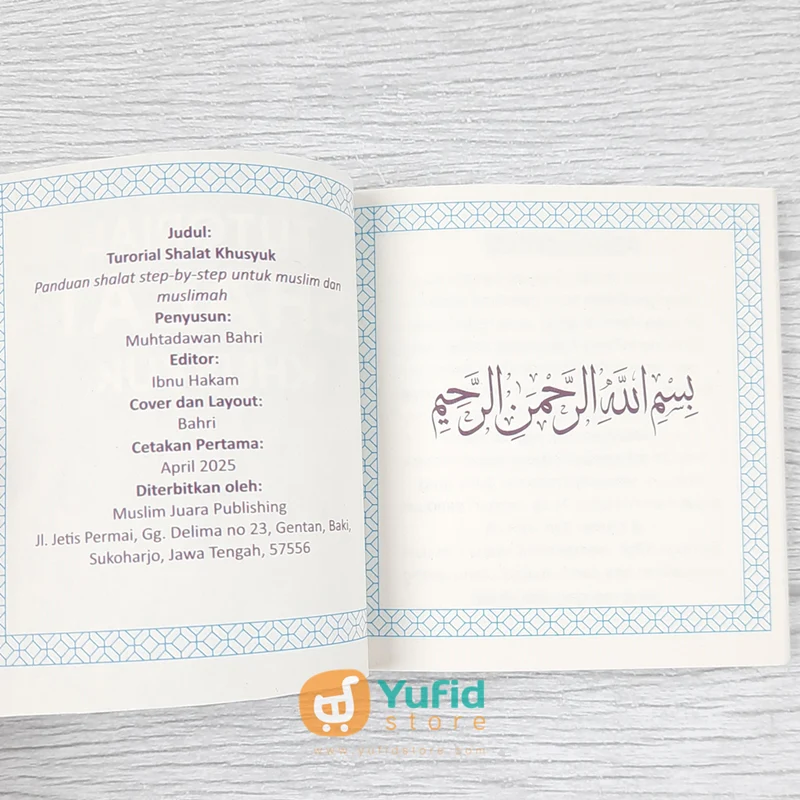 Judul:
Turorial Shalat Khusyuk
Panduan shalat step-by-step untuk muslim dan
muslimah
Penyusun:
Muhtadawan Bahri
Editor:
Ibnu Hakam
Cover dan Layout:
Bahri
Cetakan Pertama:
April 2025
Diterbitkan oleh:
Muslim Juara Publishing
Jl. Jetis Permai, Gg. Delima no 23, Gentan, Baki,
Sukoharjo, Jawa Tengah, 57556
بِسْمِ اللَّهِ الرَّحْمَنِ الرَّحِيمِ
Yufid
store
www.yufidstore.com